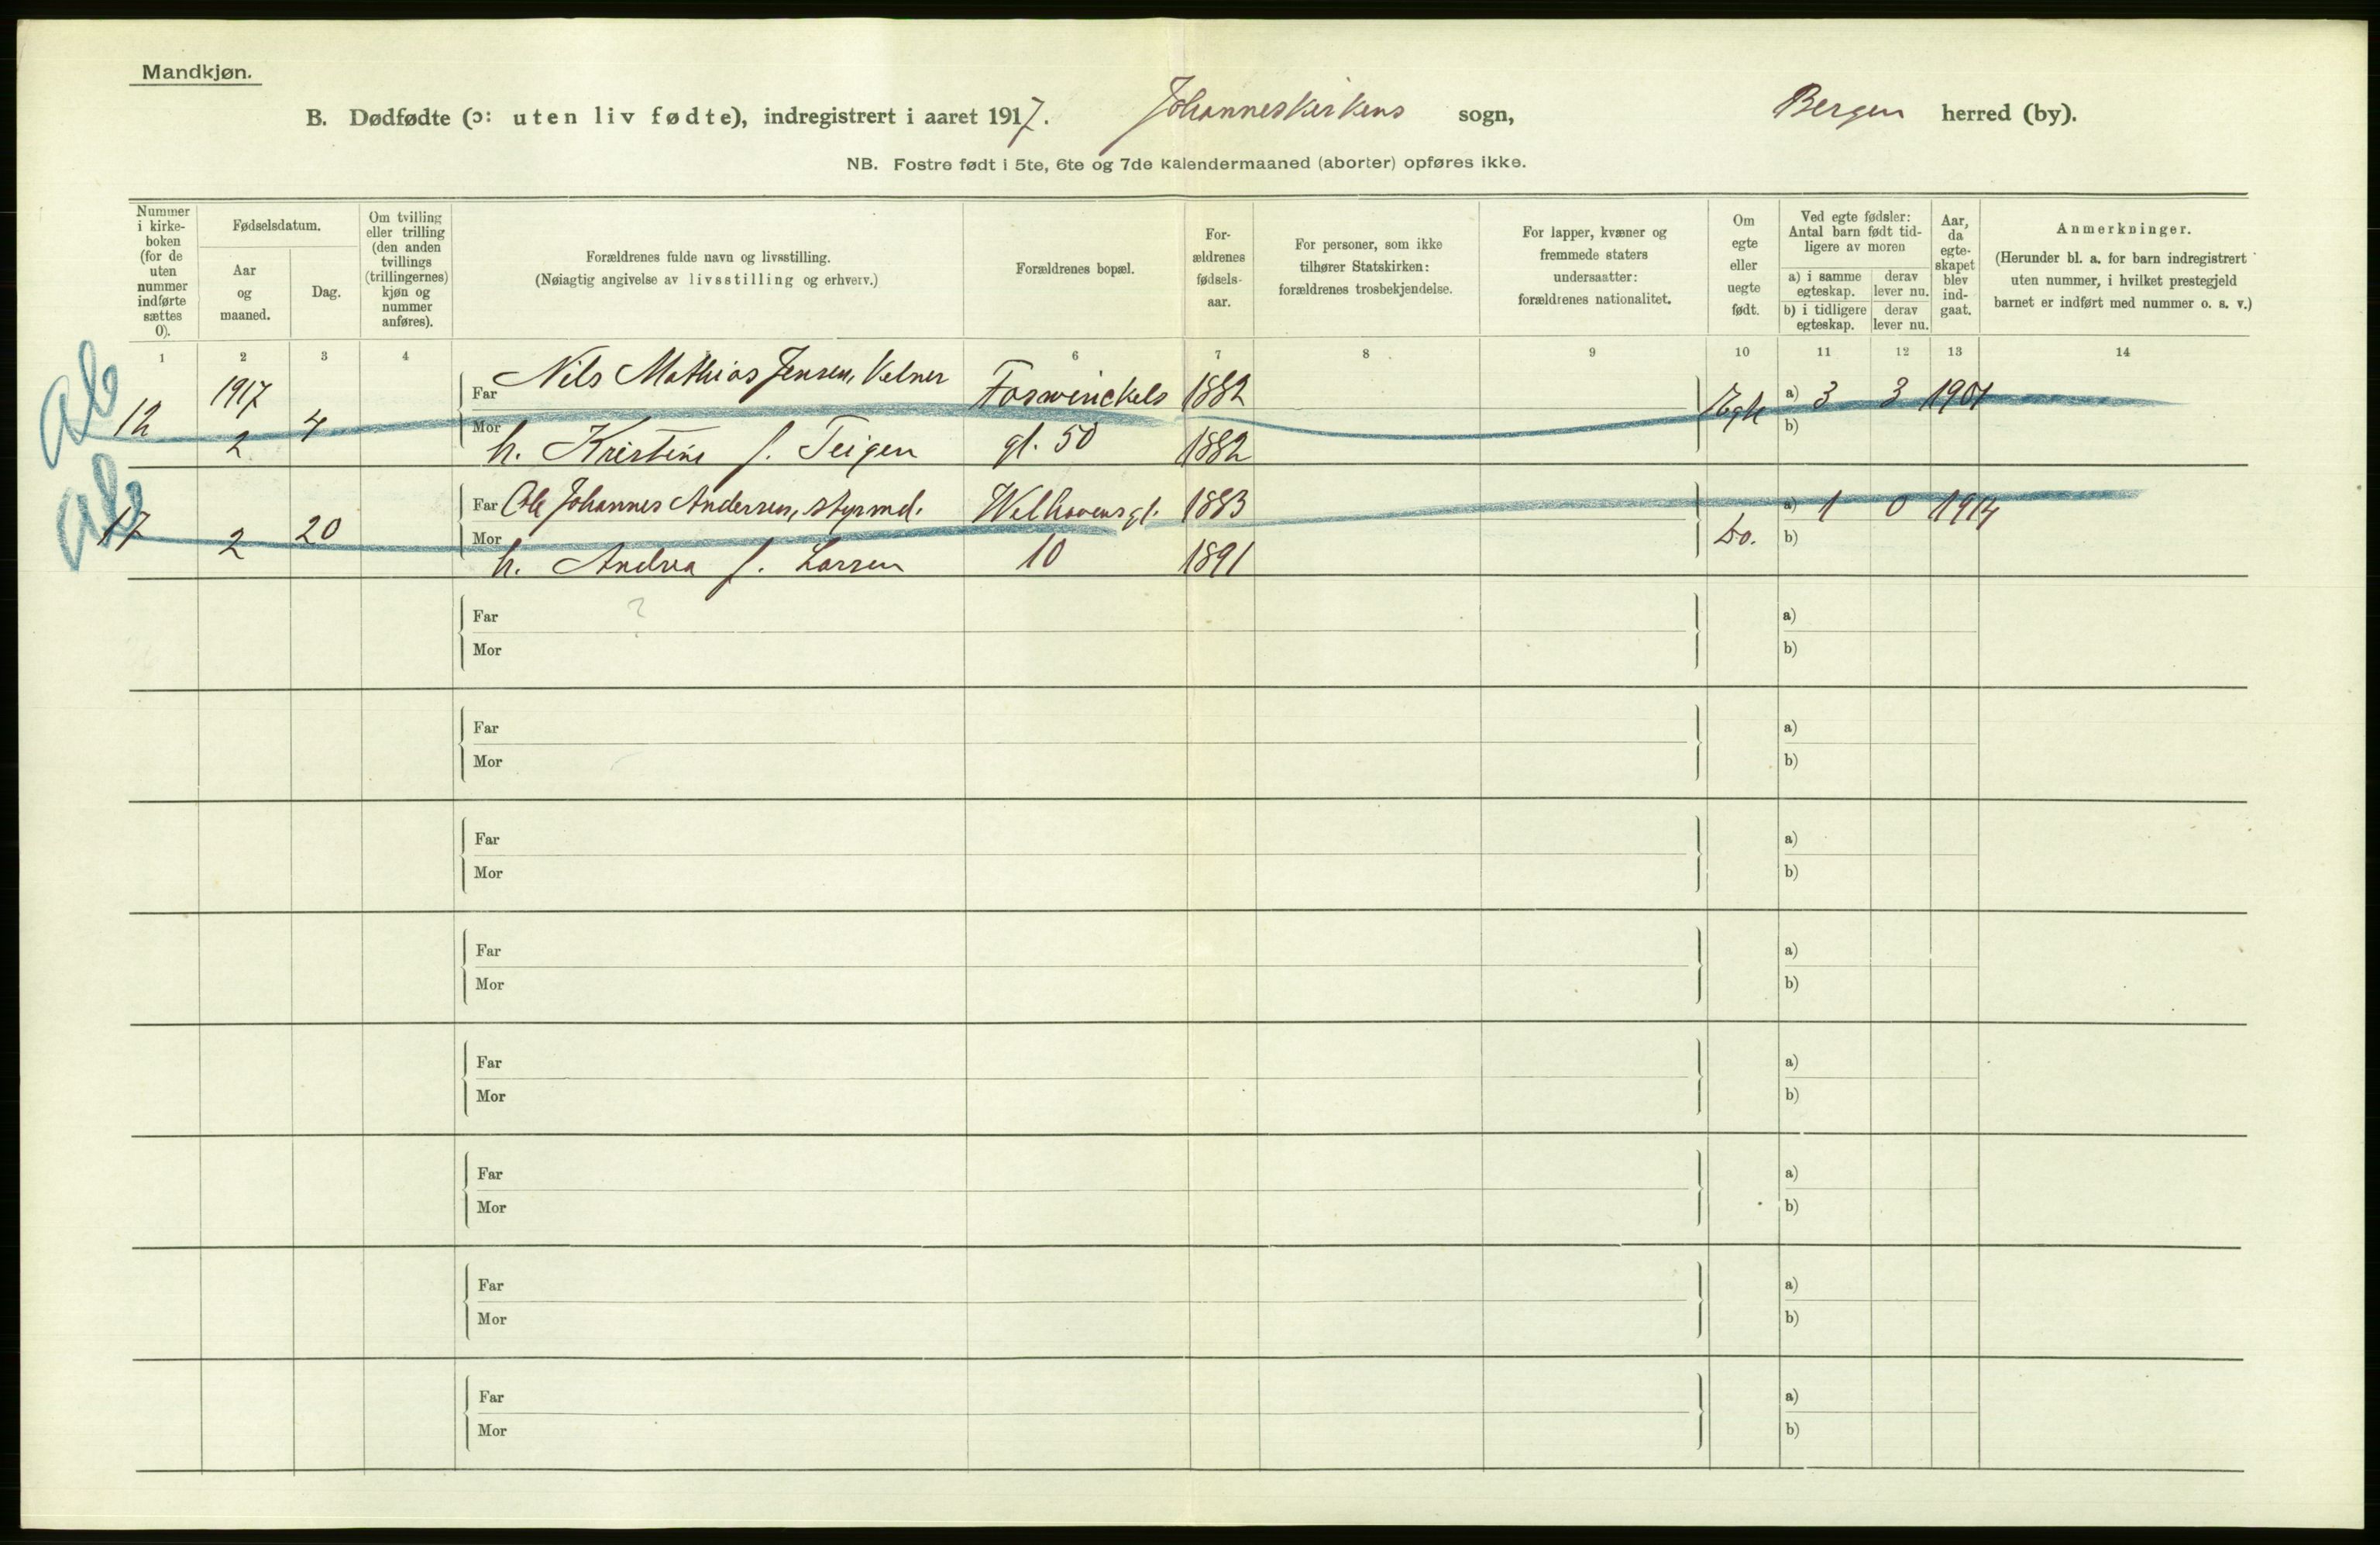 Mandkjøn.
B. Dødfødte (ɔ: uten liv fødte), indregistrert i aaret 1917. Johanneskirkens sogn, Bergen herred (by).
NB. Fostre født i 5te, 6te og 7de kalendermaaned (aborter) opføres ikke.
Nummer i kirke-boken (for de uten nummer indførte sættes 0).
Fødselsdatum.
Aar og maaned.
Dag.
Om tvilling eller trilling (den anden tvillings (trillingernes) kjøn og nummer anføres).
Forældrenes fulde navn og livsstilling.
(Nøiagtig angivelse av livsstilling og erhverv.)
Forældrenes bopæl.
For-ældrenes fødsels-aar.
For personer, som ikke tilhører Statskirken: forældrenes trosbekjendelse.
For lapper, kvæner og fremmede staters undersaatter: forældrenes nationalitet.
Om egte eller uegte født.
Ved egte fødsler: Antal barn født tid-ligere av moren
a) i samme egteskap.
derav lever nu.
b) i tidligere egteskap.
derav lever nu.
Aar, da egte-skapet blev ind-gaat.
Anmerkninger.
(Herunder bl. a. for barn indregistrert uten nummer, i hvilket prestegjeld barnet er indført med nummer o. s. v.)
1 2 3 4 6 7 8 9 10 11 12 13 14
12 1917 2 4 Far Nils Mathias Jensen, Kelner Foswinckels 1882 Egte a) 3 3 1901
Mor h. Kristine f. Teigen gt. 50 1882 b)
17 2 20 Far Ole Johannes Andersen, styrmd. Welhavensgt. 1883 Do. a) 1 0 1914
Mor h. Andrea f. Larsen 10 1891 b)
Far ? a)
Mor b)
Far a)
Mor b)
Far a)
Mor b)
Far a)
Mor b)
Far a)
Mor b)
Far a)
Mor b)
Far a)
Mor b)
Far a)
Mor b)